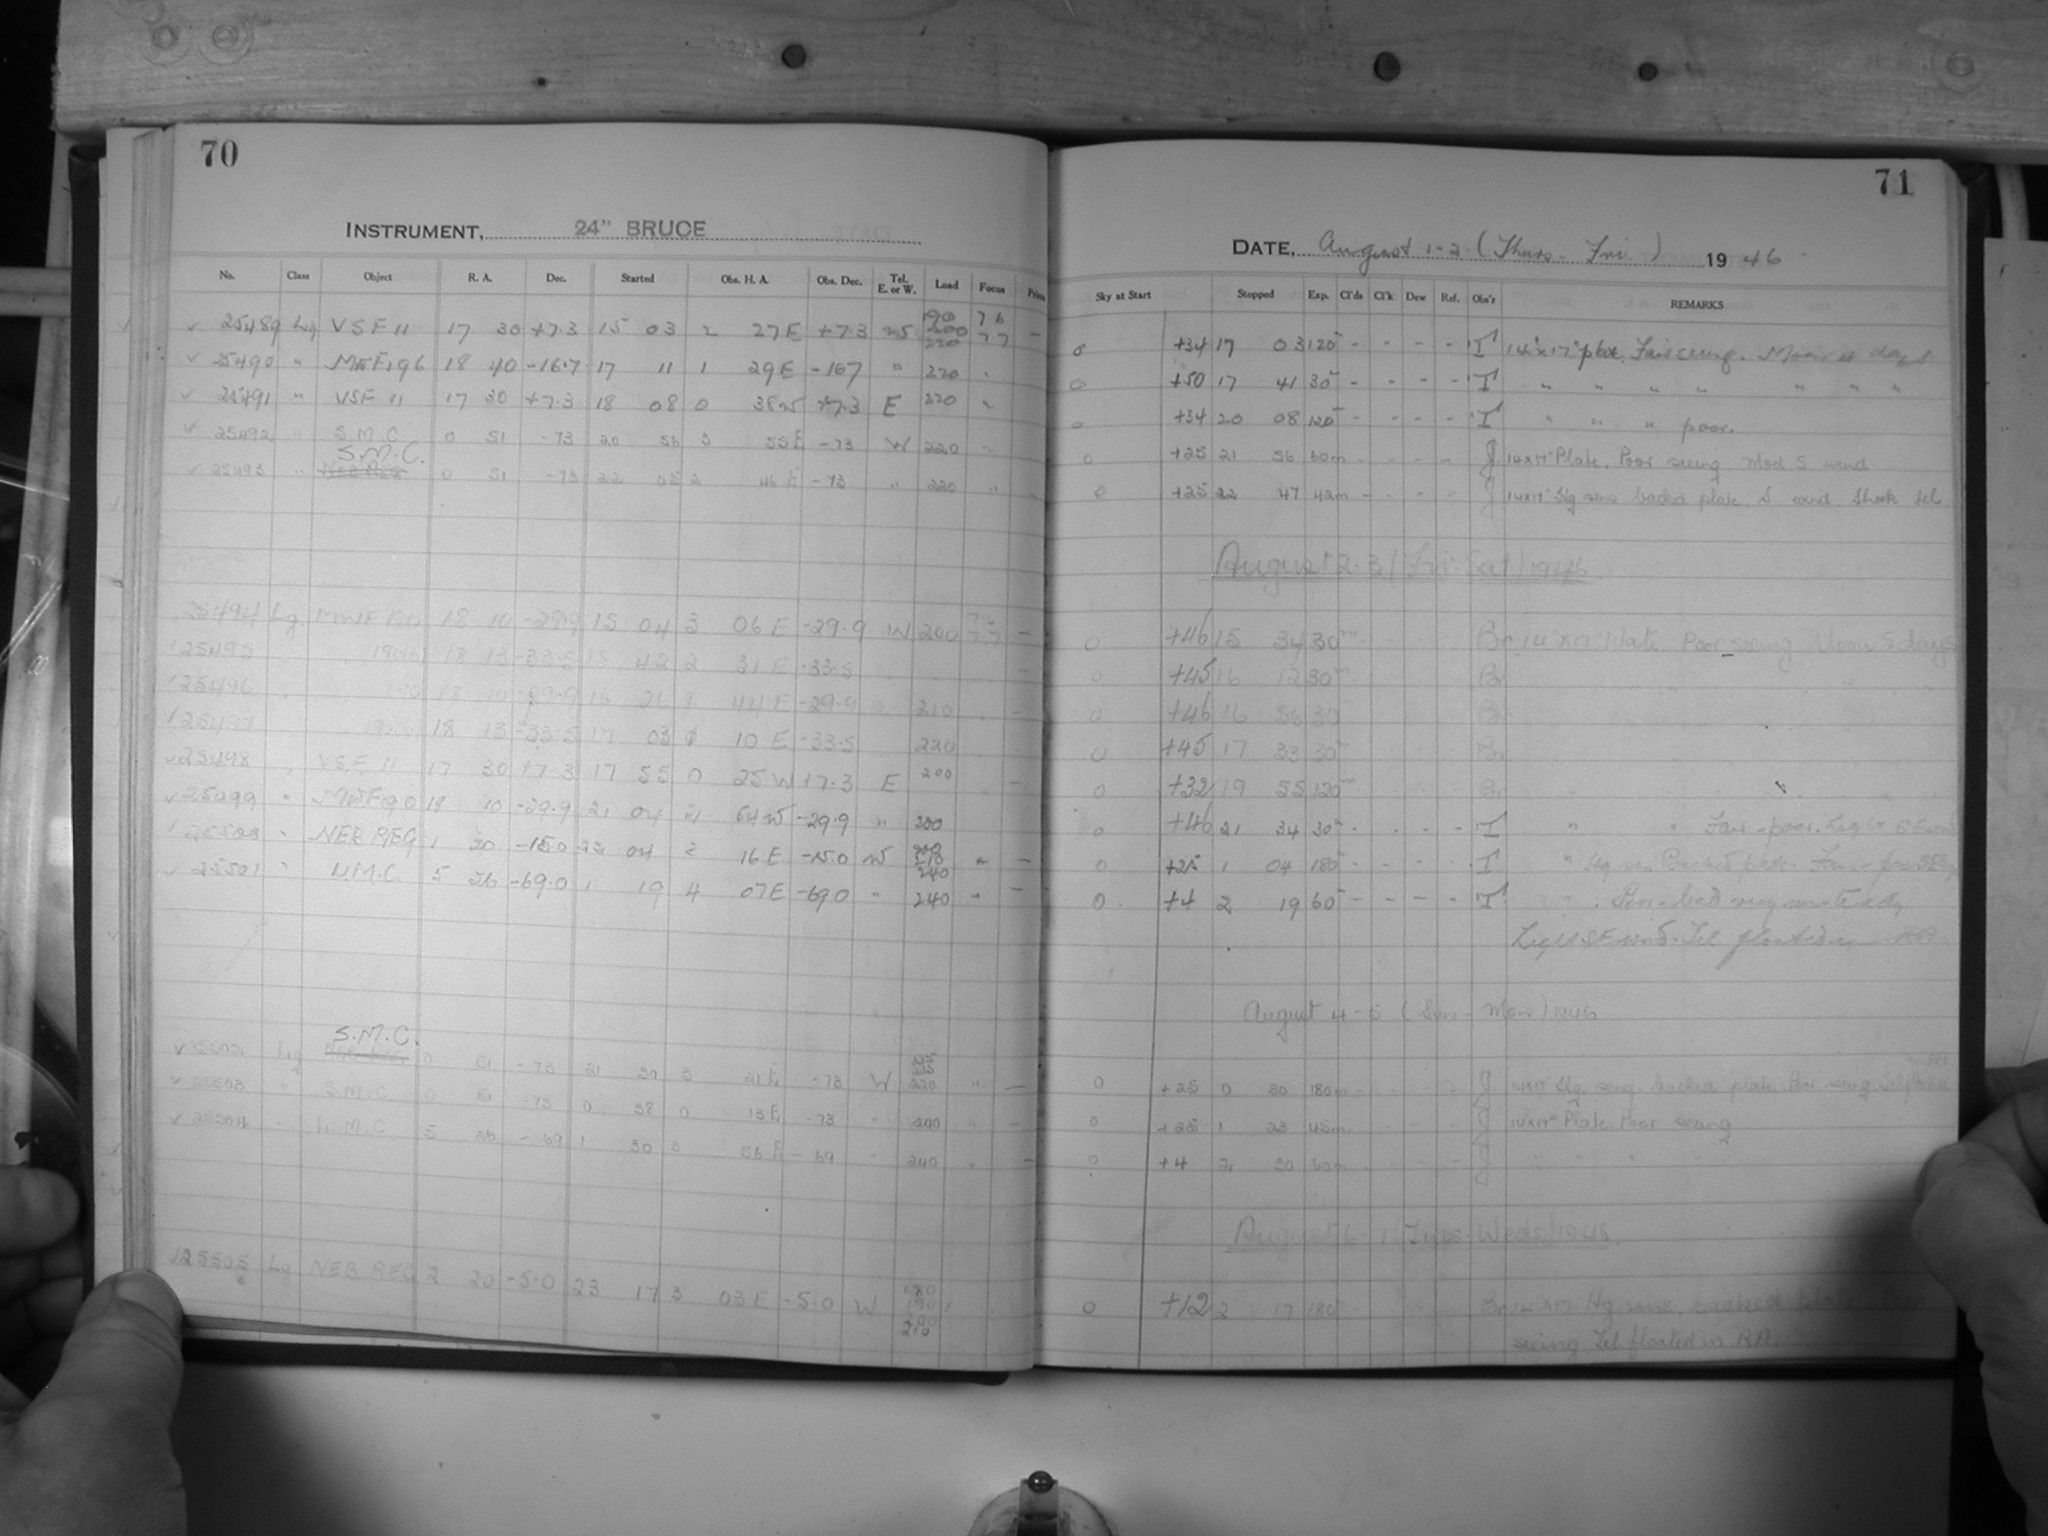 70
INSTRUMENT, 24" BRUCE
No. Class Object R. A. Dec. Started Obs. H. A. Obs. Dec. Tel. E. or W. Load Focus
25489 Lg VSF 11 17 30 +7.3 15 03 2 27 E +7.3 W 190 200 220 7.6 7.7 -
25490 " MWF 196 18 40 -16.7 17 11 1 29 E -16.7 " 220 "
25491 " VSF 11 17 30 +7.3 18 08 0 38 W +7.3 E 220 "
25492 " S.M.C. 0 51 -73 20 56 3 55 E -73 W 220 "
S.M.C.
25493 " NEB REG 0 51 -73 22 05 2 46 E -73 " 220 "
25494 Lg MWF 190 18 10 -29.9 15 04 3 06 E -29.9 W 200 7.6 7.7 -
25495 18 13 -33.5 15 42 2 31 E -33.5
25496 190 18 10 -29.9 16 26 1 44 E -29.9 210
25497 18 13 -33.5 17 03 10 E -33.5 220
25498 VSF 11 17 30 +7.3 17 55 0 25 W +7.3 E 200
25499 " MWF 190 18 10 -29.9 21 04 W -29.9 " 200
25500 " NEB REG 1 20 -15.0 22 04 2 16 E -15.0 W 240 " -
25501 " L.M.C. 5 26 -69.0 1 19 4 07 E -69.0 " 240 " -
S.M.C.
25502 Lg NEB REG 0 51 -73 21 30 3 21 E -73 W 220 " -
25503 " S.M.C. 0 51 -73 0 38 0 13 E -73 " 240 " -
25504 " L.M.C. 5 26 -69 1 30 3 56 E -69 " 240 " -
25505 Lg NEB REG 2 20 -5.0 23 17 3 03 E -5.0 W 180 190 200 210
71
DATE, August 1-2 (Thurs - Fri.) 1946
Sky at Start Stopped Exp. Cl'ds Cl'k Dew Ref. Obs'r REMARKS
0 +34 17 03 120 - - - - T 14"x17" plate. Fair seeing. Moon 4 days
0 +50 17 41 30 - - - - T " " " " " " "
0 +34 20 08 120 - - - - T " " " poor.
0 +25 21 56 60m - - - - J 14x17" Plate. Poor seeing Mod S wind
0 +25 22 47 42m - - - - J 14x17" Hg sens backed plate. S wind Shook tel.
August 2-3 (Fri - Sat) 1946
0 +46 15 34 30m Br 14"x17" Plate. Poor seeing Moon 5 days
0 +45 16 12 30m Br
0 +46 16 56 30 Br
0 +45 17 33 30 Br
0 +32 19 55 120m Br
0 +46 21 34 30 - T " " Fair - poor. Light SE wind
0 +25 1 04 180 - - T " Hg sen Backed plate. Fair - poor
0 +4 2 19 60 - - - - T " Poor - bad seeing unsteady
Light SE wind. Tel floated in RA.
August 4-5 (Sun - Mon) 1946
0 +25 0 30 180m - - - - J 14x17" Hg sens. backed plate. Poor seeing
0 +25 1 23 45m - - - - J 14x17" Plate. Poor seeing
0 +4 2 30 60m - - - - J " " " "
August 6-7 (Tues - Weds) 1946.
0 +12 2 17 180 Br 14"x17 Hg sens. backed plate. Poor
seeing Tel floated in RA.